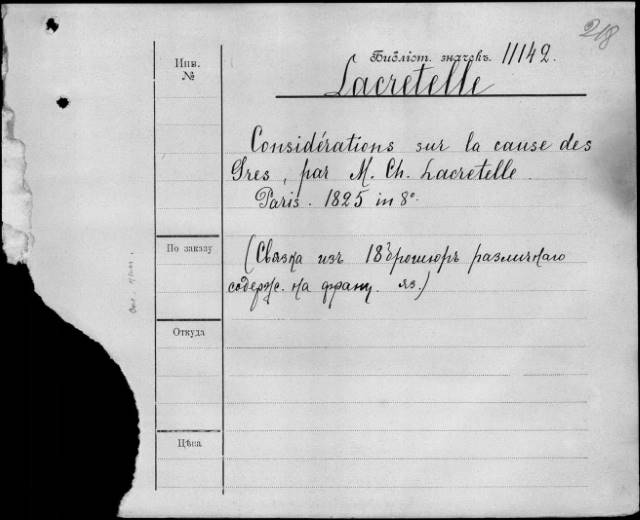 218
Инв.
№
Библіот. значекъ. 11142.
Lacretelle
Considérations sur la cause des
Gres, par M. Ch. Lacretelle
Paris. 1825 in 8°
По заказу
(Связка изъ 18 брошюръ различнаго
содерж. на франц. яз.)
Откуда
Цѣна